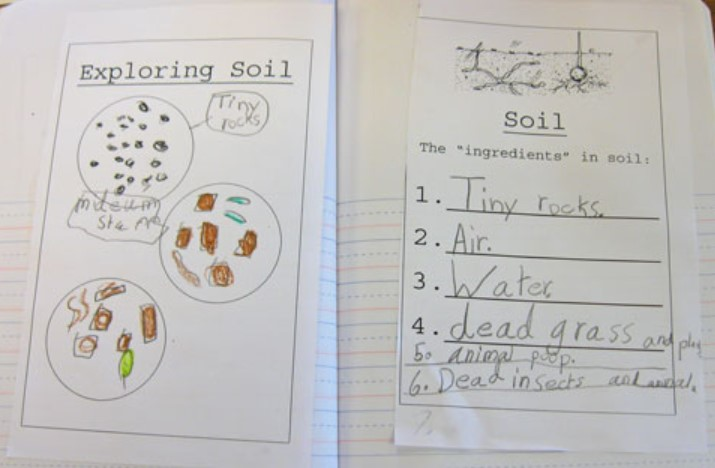 Exploring Soil
Tiny
rocks
Soil
The "ingredients" in soil:
1. Tiny rocks.
2. Air.
3. Water
4. dead grass and
5. animal poop.
6. Dead insects and